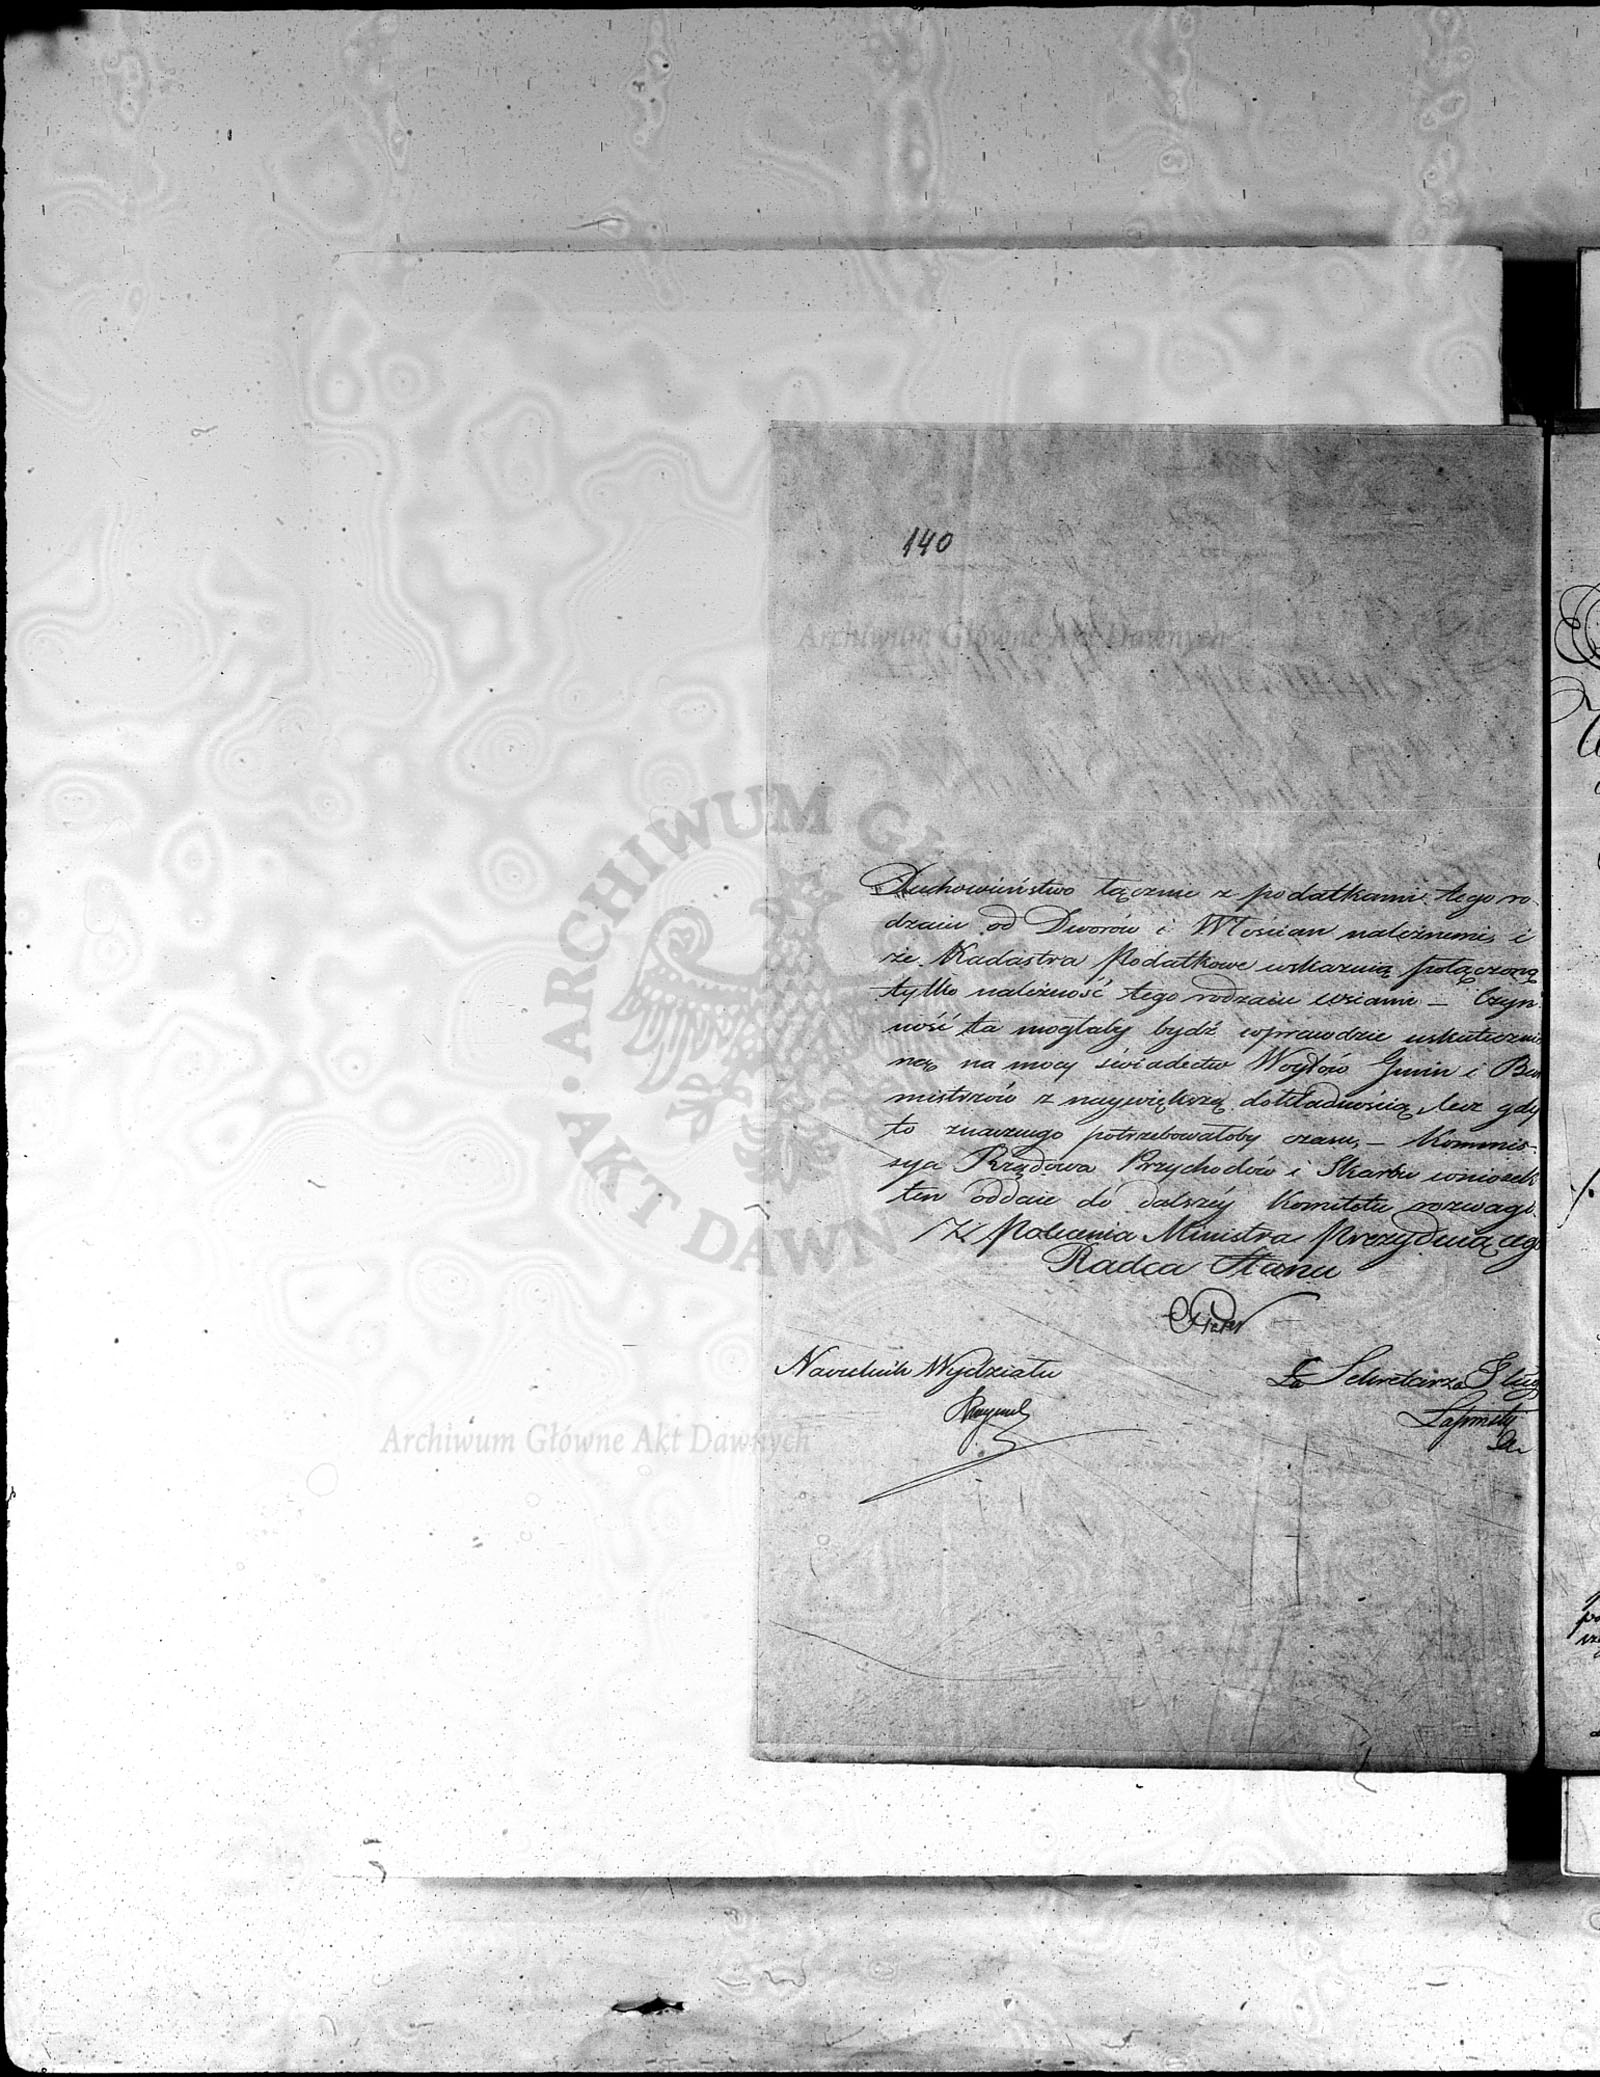 140
Archiwum Główne Akt Dawnych
Duchowieństwo łącznie z podatkami tego ro-
dzaiu od Dworów i Włościan należnemi, i
że Kadastra Podatkowe wskazuią połączoną
tylko należność tego rodzaiu wsiami – Czyn-
ność ta mogłaby bydź wprawdzie uskutecznio-
ną na mocy świadectw Woytów Gmin i Bur
mistrzów z naywiększą dokładnością, lecz gdy
to znacznego potrzebowałoby czasu, – Kommis-
sya Rządowa Przychodów i Skarbu wniosek
ten oddaie do dalszéy Komitetu rozwagi.
Z Polecenia Ministra Prezyduiącego
Radca Stanu
Naczelnik Wydziału
Za Sekretarza Jlnego
Archiwum Główne Akt Dawnych
ARCHIWUM GŁÓWNE AKT DAWNYCH